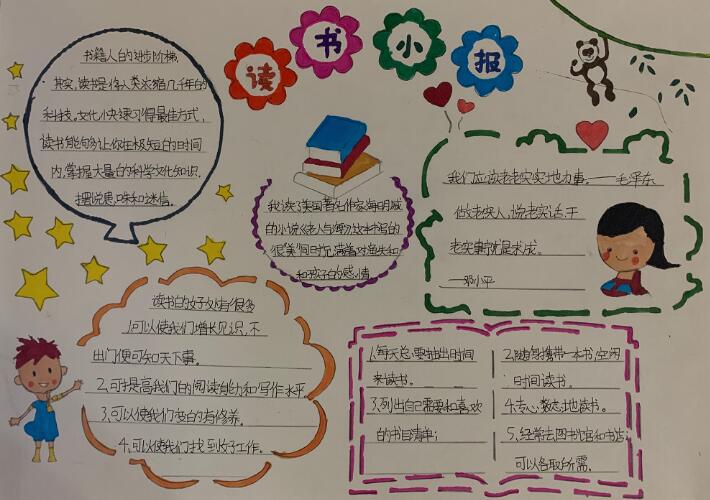 读书小报
书籍人的进步阶梯
其实,读书是像人类浓缩几千年的
科技。文化小央速习得最佳方式,
读书能够让你在极短的时间
内,掌握大量的科学文化知识.
摆脱愚昧和迷信。
我读了美国著名作家海明威
的小说《老人与海》这本书写的
很美,同时充满着对渔夫和
和孩子的感情
我们应该老老实实地办事。——毛泽东
做老实人,说老实话,干
老实事,就是求成。
—邓小平
读书的好处有很多
1.可以使我们增长见识,不
出门便可知天下事。
2.可提高我们的阅读能力和写作水平.
3.可以使我们变的有修养。
4.可以使我们找到好工作。
1.每天总要抽出时间
来读书。
3.列出自己需要和喜欢
的书目清单;
2.随身携带一本书,空闲
时间读书。
4.专心致志地读书。
5.经常去图书馆和书店,
可以各取所需。